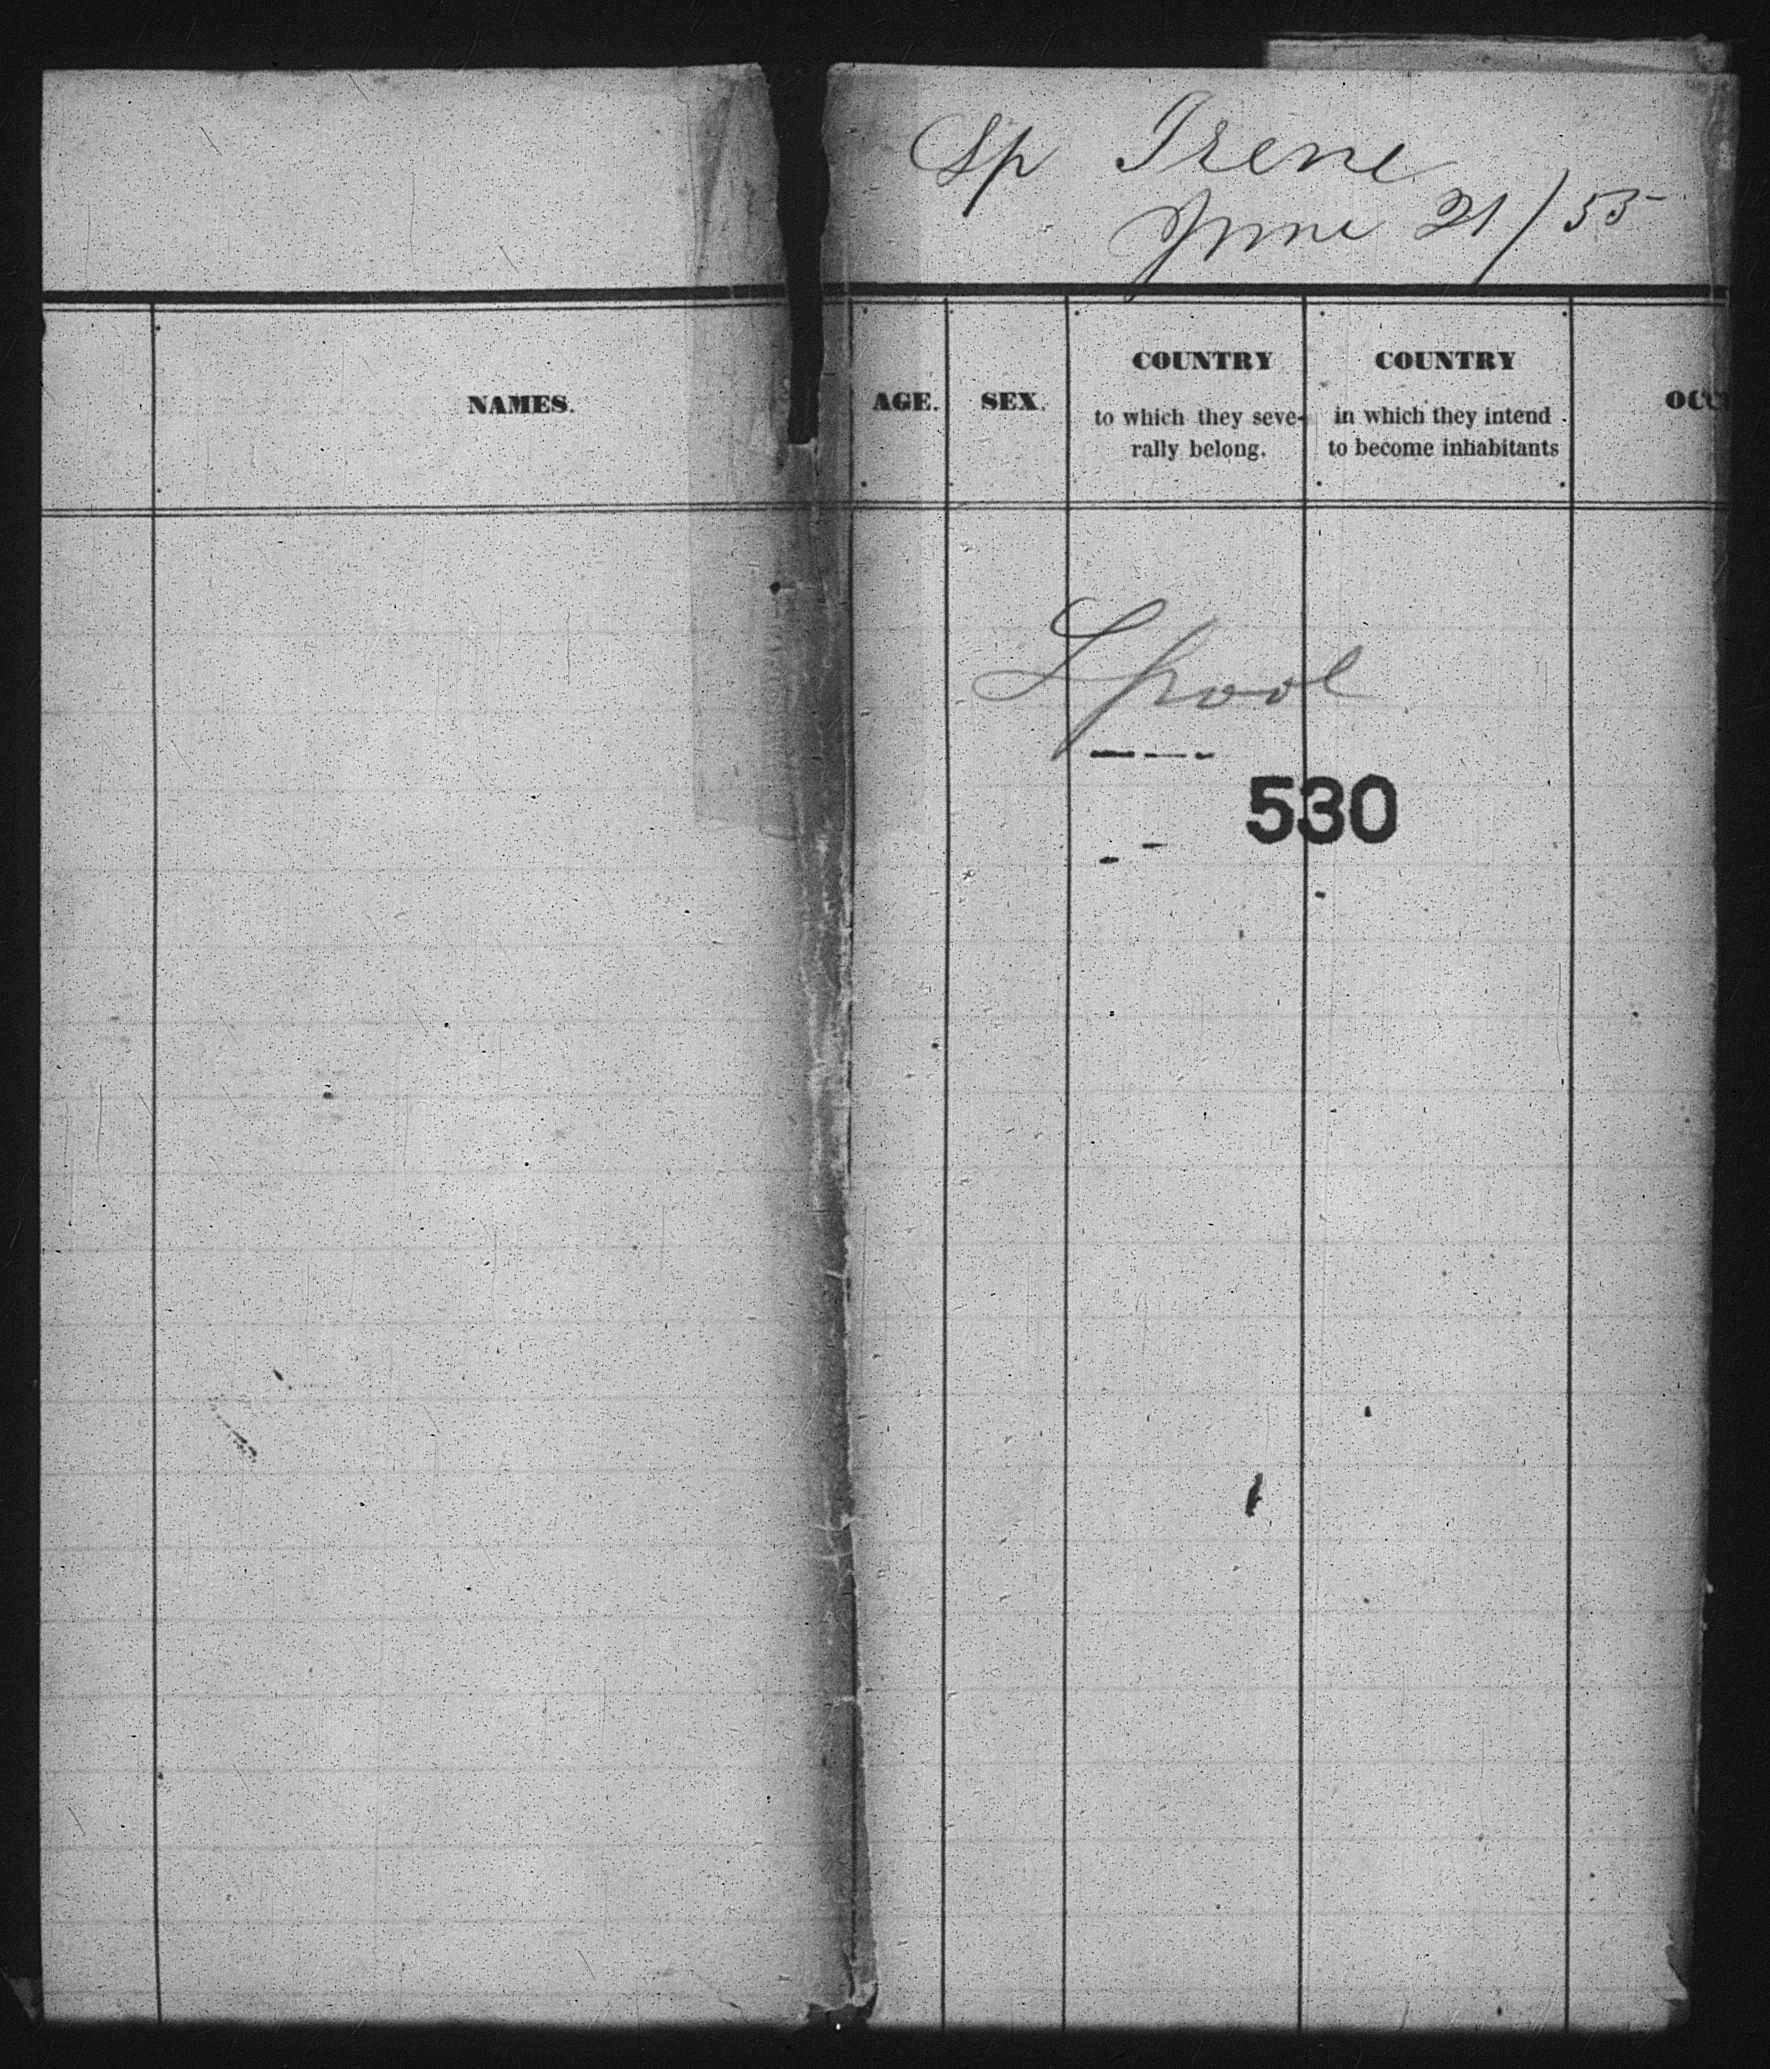 Sp Irene
June 21/55
NAMES.
AGE.
SEX.
COUNTRY
to which they seve-
rally belong.
COUNTRY
in which they intend
to become inhabitants
OCCU
Lpool
530